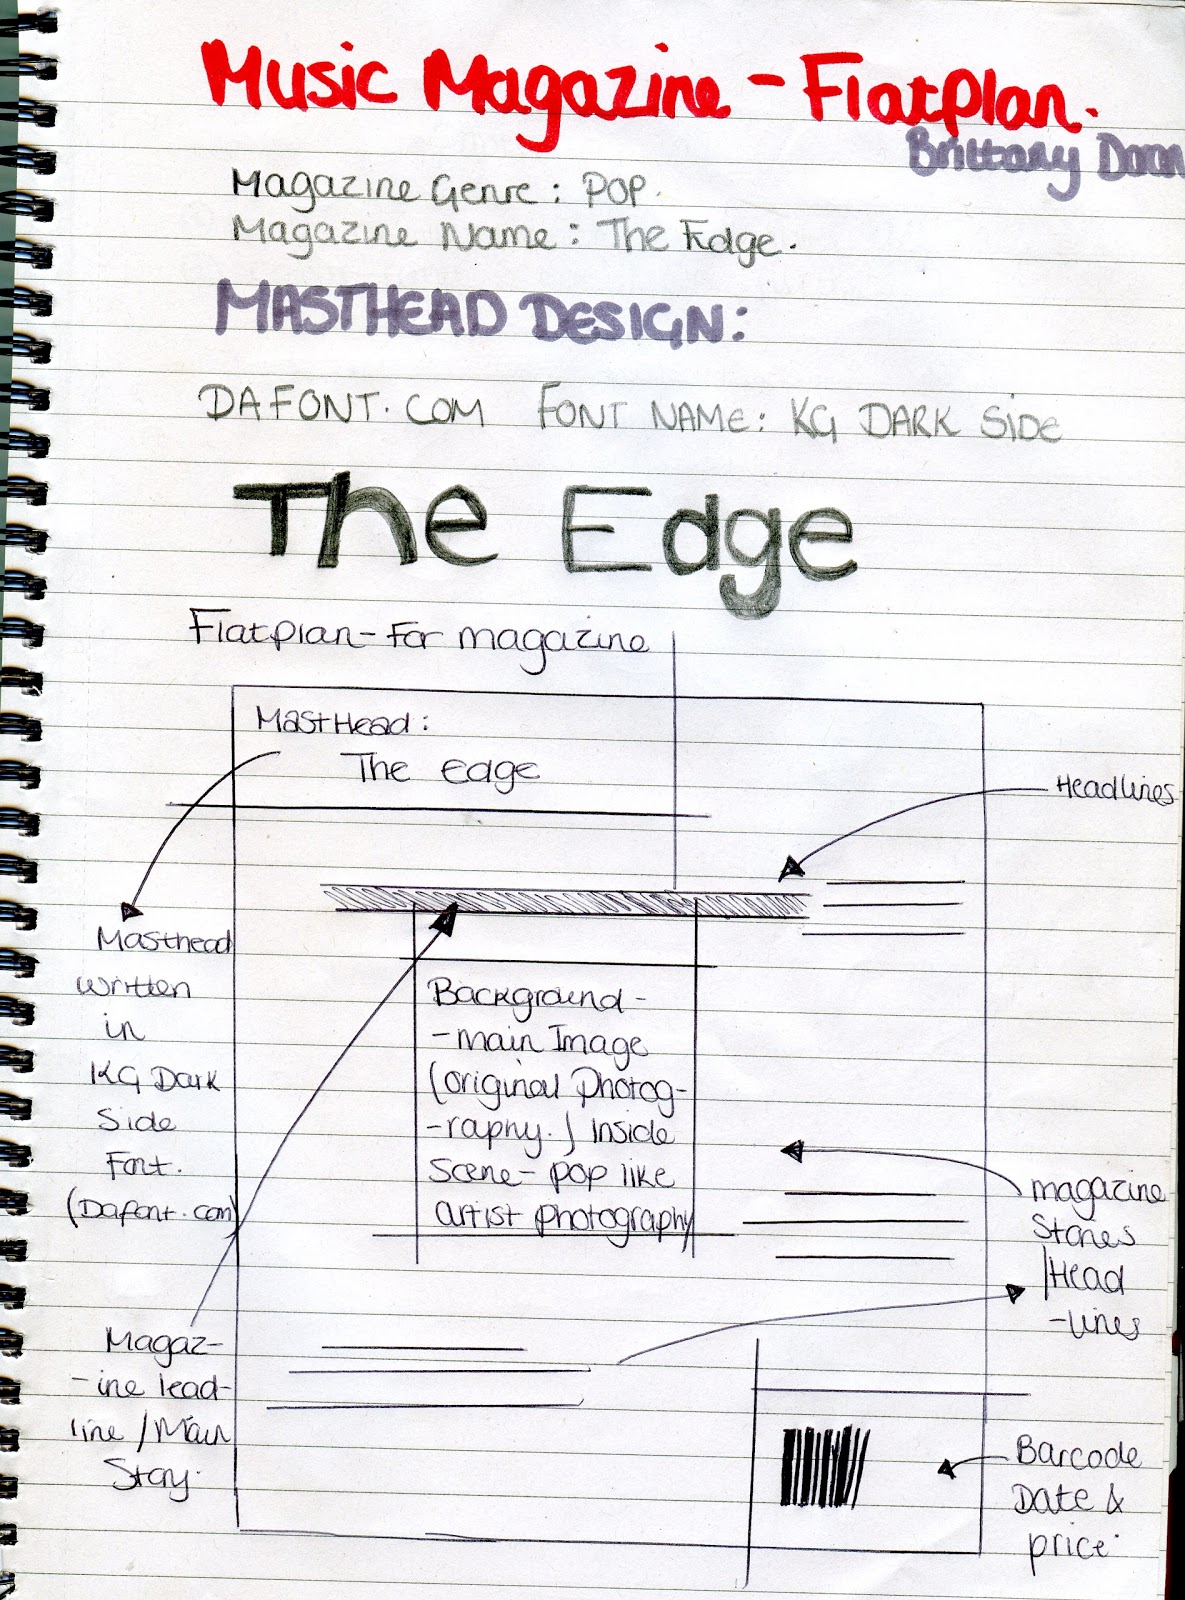 Music Magazine - Flatplan.
Brittany
Magazine Genre: POP.
Magazine Name: The Edge.
MASTHEAD DESIGN:
DAFONT.COM FONT NAME: KG DARK SIDE
The Edge
Flatplan - For magazine
MastHead:
The edge
Headlines
Masthead
written
in
KG Dark
Side
Font.
(Dafont.com)
Background -
- main Image
(original photog-
-raphy.) inside
scene - pop like
artist photography
magazine
Stories
/Head
-lines
Magaz-
-ine lead-
line / Main
Story.
Barcode
Date &
price.